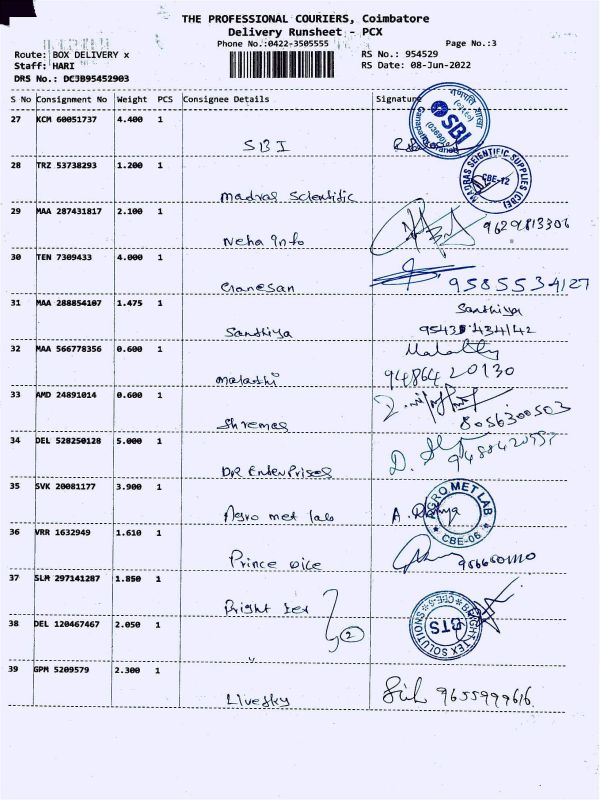 THE PROFESSIONAL COURIERS, Coimbatore
Delivery Runsheet - PCX
Phone No.:0422-3505555 Page No.:3
Route: BOX DELIVERY x RS No.: 954529
Staff: HARI RS Date: 08-Jun-2022
DRS No.: DC3B95452903
S No Consignment No Weight PCS Consignee Details Signature
27 KCM 60051737 4.400 1
SBI
SBI
28 TRZ 53738293 1.200 1
MADRAS SCIENTIFIC SUPPLIES (CBE)
CBE-12
Madras Scientific
29 MAA 287431817 2.100 1
Neha Info 9629813306
30 TEN 7309433 4.000 1
Ganesan 9585534127
31 MAA 288854107 1.475 1
Santhiya
Santhiya 95431 434142
32 MAA 566778356 0.600 1
Malathi 94864 20130
33 AMD 24891014 0.600 1
Shremas 8056300503
34 DEL 528250128 5.000 1
DR Enterprises
35 SVK 20081177 3.900 1
AGRO MET LAB
CBE-06
Agro met lab
36 VRR 1632949 1.610 1
Prince
37 SLM 297141287 1.850 1
Bright tex
BRIGHT TEX SOLUTIONS
BTS
38 DEL 120467467 2.050 1
2
39 GPM 5209579 2.300 1
Livesky 9655999616